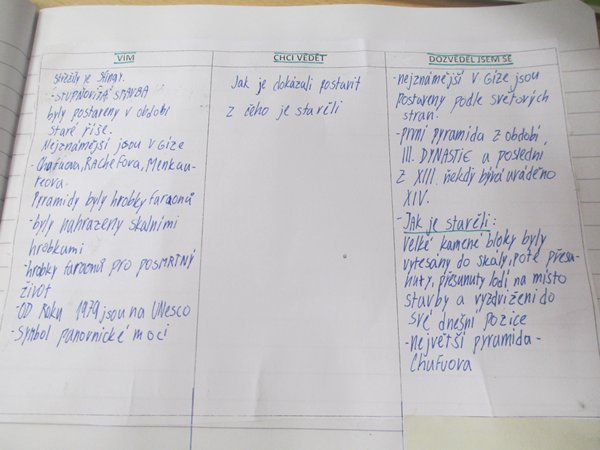 VÍM
střežily je sfingy.
-STUPŇOVITÁ STAVBA
byly postaveny v období
staré říše.
Nejznámější jsou v Gíze
-Chufuova, RAchefova, Menkau-
reova.
Pyramidy byly hrobky faraonů
-byly nahrazeny skalními
hrobkami
-hrobky faraonů pro POSMRTNÝ
život
-OD Roku 1979 jsou na UNesco
-symbol panovnické moci
CHCI VĚDĚT
Jak je dokázali postavit
z čeho je stavěli
DOZVĚDĚL JSEM SE
-nejznámější v Gíze jsou
postaveny podle světových
stran.
-první pyramida z období
III. DYNASTIE a poslední
z XIII. někdy bývá uváděno
XIV.
-JAK je stavěli:
velké kamené bloky byly
vytesány do skály, poté přesu-
nuty, přesunuty lodí na místo
stavby a vyzdviženi do
své dnešní pozice
-největší pyramida-
Chufuova